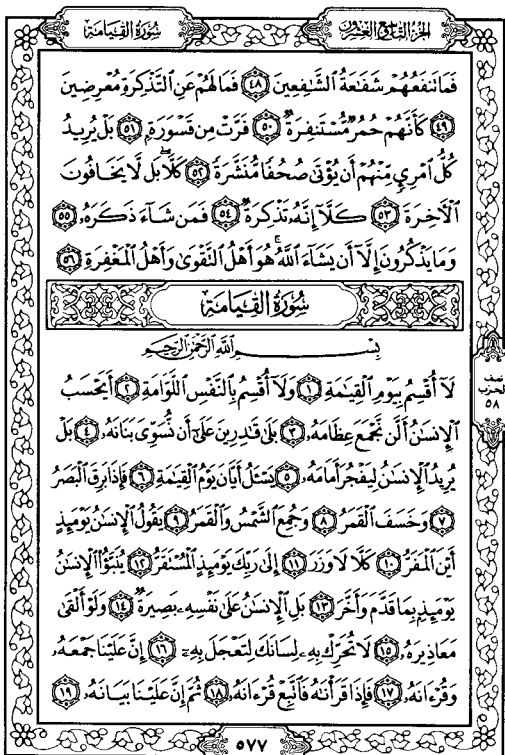 الجزء التاسع والعشرون
سُورَةُ القِيَامَة
فَمَا تَنفَعُهُمْ شَفَٰعَةُ ٱلشَّٰفِعِينَ ٤٨ فَمَا لَهُمْ عَنِ ٱلتَّذْكِرَةِ مُعْرِضِينَ
٤٩ كَأَنَّهُمْ حُمُرٌ مُّسْتَنفِرَةٌ ٥٠ فَرَّتْ مِن قَسْوَرَةٍۭ ٥١ بَلْ يُرِيدُ
كُلُّ ٱمْرِئٍ مِّنْهُمْ أَن يُؤْتَىٰ صُحُفًا مُّنَشَّرَةً ٥٢ كَلَّا ۖ بَل لَّا يَخَافُونَ
ٱلْءَاخِرَةَ ٥٣ كَلَّآ إِنَّهُۥ تَذْكِرَةٌ ٥٤ فَمَن شَآءَ ذَكَرَهُۥ ٥٥
وَمَا يَذْكُرُونَ إِلَّآ أَن يَشَآءَ ٱللَّهُ ۚ هُوَ أَهْلُ ٱلتَّقْوَىٰ وَأَهْلُ ٱلْمَغْفِرَةِ ٥٦
سُورَةُ القِيَامَة
بِسْمِ ٱللَّهِ ٱلرَّحْمَٰنِ ٱلرَّحِيمِ
لَآ أُقْسِمُ بِيَوْمِ ٱلْقِيَٰمَةِ ١ وَلَآ أُقْسِمُ بِٱلنَّفْسِ ٱللَّوَّامَةِ ٢ أَيَحْسَبُ
ٱلْإِنسَٰنُ أَلَّن نَّجْمَعَ عِظَامَهُۥ ٣ بَلَىٰ قَٰدِرِينَ عَلَىٰٓ أَن نُّسَوِّىَ بَنَانَهُۥ ٤ بَلْ
يُرِيدُ ٱلْإِنسَٰنُ لِيَفْجُرَ أَمَامَهُۥ ٥ يَسْـَٔلُ أَيَّانَ يَوْمُ ٱلْقِيَٰمَةِ ٦ فَإِذَا بَرِقَ ٱلْبَصَرُ
٧ وَخَسَفَ ٱلْقَمَرُ ٨ وَجُمِعَ ٱلشَّمْسُ وَٱلْقَمَرُ ٩ يَقُولُ ٱلْإِنسَٰنُ يَوْمَئِذٍ
أَيْنَ ٱلْمَفَرُّ ١٠ كَلَّا لَا وَزَرَ ١١ إِلَىٰ رَبِّكَ يَوْمَئِذٍ ٱلْمُسْتَقَرُّ ١٢ يُنَبَّؤُا۟ ٱلْإِنسَٰنُ
يَوْمَئِذٍۭ بِمَا قَدَّمَ وَأَخَّرَ ١٣ بَلِ ٱلْإِنسَٰنُ عَلَىٰ نَفْسِهِۦ بَصِيرَةٌ ١٤ وَلَوْ أَلْقَىٰ
مَعَاذِيرَهُۥ ١٥ لَا تُحَرِّكْ بِهِۦ لِسَانَكَ لِتَعْجَلَ بِهِۦٓ ١٦ إِنَّ عَلَيْنَا جَمْعَهُۥ
وَقُرْءَانَهُۥ ١٧ فَإِذَا قَرَأْنَٰهُ فَٱتَّبِعْ قُرْءَانَهُۥ ١٨ ثُمَّ إِنَّ عَلَيْنَا بَيَانَهُۥ ١٩
نصف
الحزب
٥٨
٥٧٧